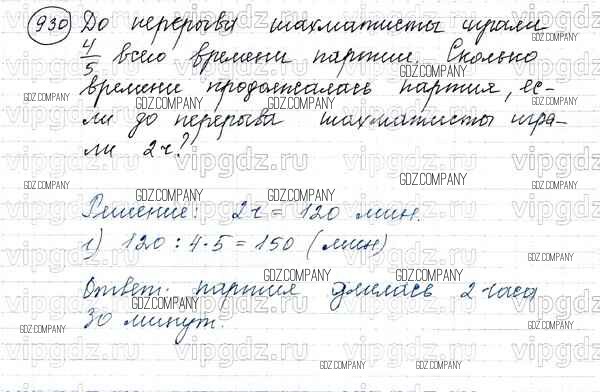 930 До перерыва шахматисты играли
4/5 всего времени партии. Сколько
времени продолжалась партия, ес-
ли до перерыва шахматисты игра-
ли 2ч?
Решение: 2ч = 120 мин.
1) 120 : 4 · 5 = 150 (мин)
Ответ: партия длилась 2 часа
30 минут.